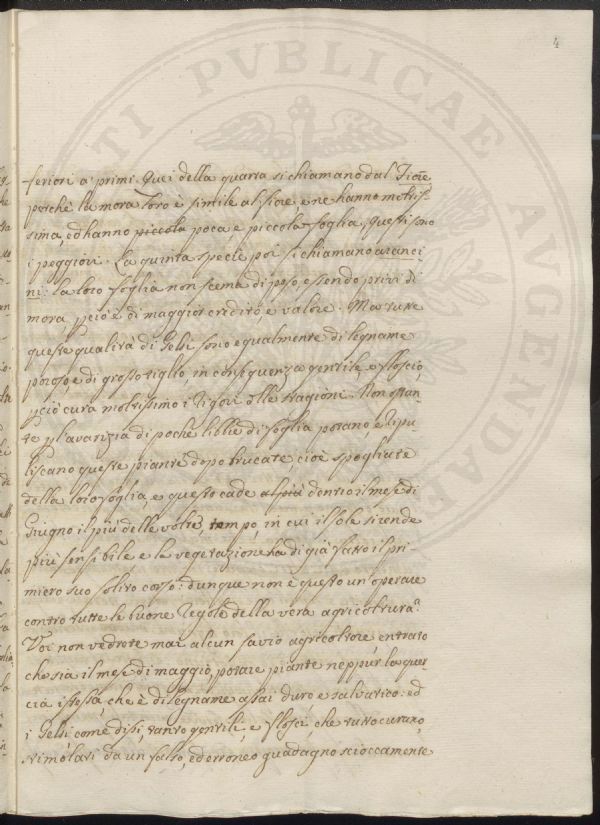 4
feriori a' primi. Quei della quarta si chiamano dal Fiore
perchè la mora loro è simile al fiore, e ne hanno moltis-
sima, ed hanno piccola poca, e piccola foglia. Questi sono
i peggiori. La quinta specie poi si chiamano arancí-
ni: la loro foglia non scema di peso essendo privi di
mora, pciò è di maggior credito, e valore. Ma tutte
queste qualità di Gelsi sono egualmente di legname
poroso, e di grosso tiglio, in conseguenza gentile, e floscio,
pciò cura moltissimo i rigori delle stagioni. Non ostan-
te p l'avarizia di poche libbre di foglia potano, e ripu-
liscano queste piante dopo brucate, cioè spogliate
della loro foglia, e questo cade al più dentro il mese di
Giugno il più delle volte, tempo, in cui il sole si rende
più sensibile, e la vegetazione ha di già fatto il pri-
miero suo solito corso: dunque non è questo un operare
contro tutte le buone regole della vera agricoltura?
Voi non vedrete mai alcun savio agricoltore entrato
che sia il mese di maggio, potare piante neppur la quer-
cia istessa, che è di legname assai duro e salvatico: ed
i Gelsi come dissi, tanto gentili, e flosci, che tutto curano,
stimolati da un falso, ed erroneo guadagno scioccamente
PUBLICAE AUGENDAE